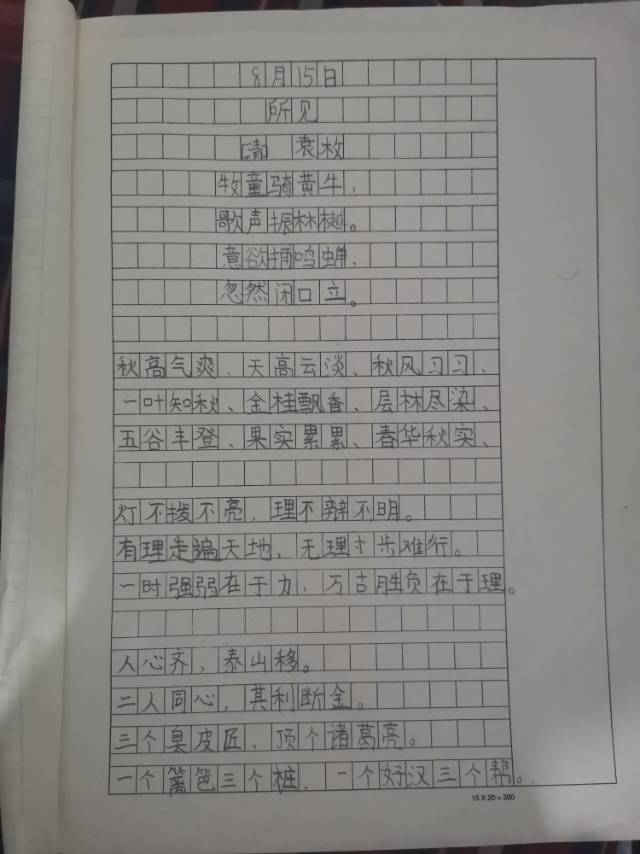 8月15日
所见
[清] 袁枚
牧童骑黄牛，
歌声振林樾。
意欲捕鸣蝉，
忽然闭口立。
秋高气爽、天高云淡、秋风习习、
一叶知秋、金桂飘香、层林尽染、
五谷丰登、果实累累、春华秋实、
灯不拨不亮，理不辩不明。
有理走遍天地，无理寸步难行。
一时强弱在于力，万古胜负在于理。
人心齐，泰山移。
二人同心，其利断金。
三个臭皮匠，顶个诸葛亮。
一个篱笆三个桩，一个好汉三个帮。
15 X 20 = 300